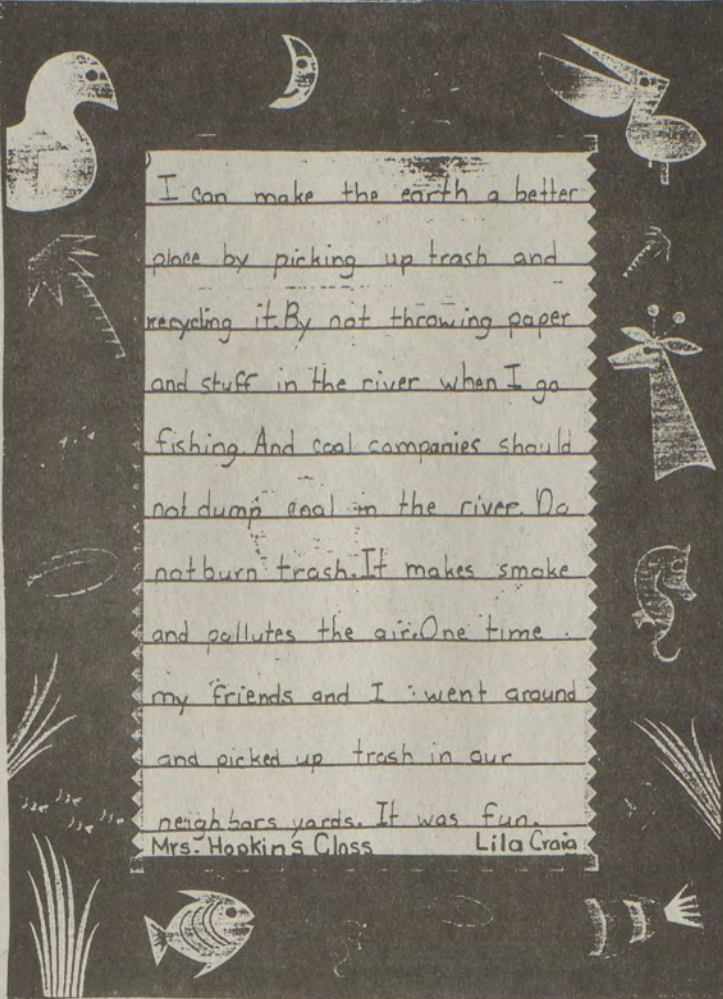 I can make the earth a better
place by picking up trash and
recycling it. By not throwing paper
and stuff in the river when I go
fishing. And coal companies should
not dump coal in the river. Do
not burn trash. It makes smoke
and pollutes the air. One time
my friends and I went around
and picked up trash in our
neighbors yards. It was fun.
Mrs. Hopkins Class Lila Craig